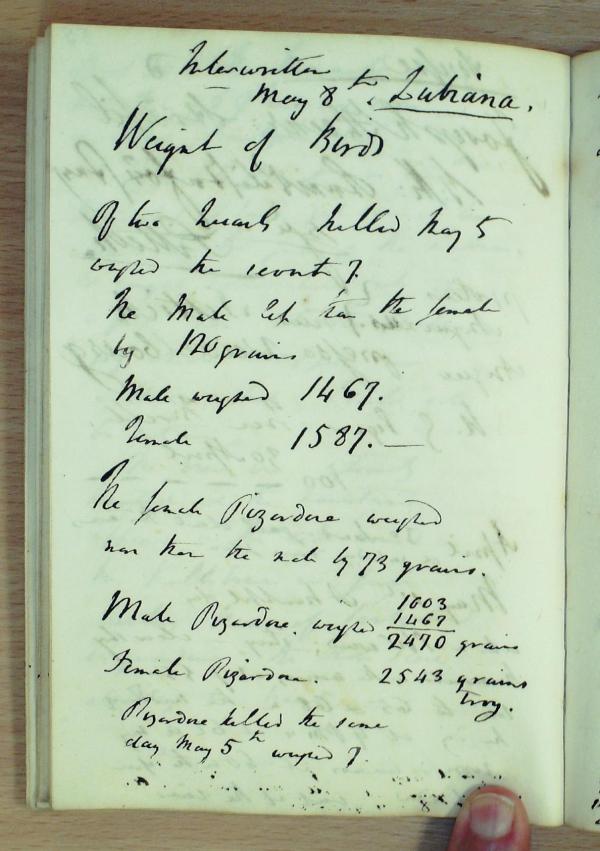 Interwritten
May 8th, Lubiana.
Weight of Birds
Of two killed May 5
weighed the seventh 7.
The Male less than the female
by 120 grains
Male weighed 1467.
Female 1587. —
The female Pizardone weighed
more than the male by 73 grains.
1003
1467
Male Pizardone. weighed 2470 grains
Female Pizardone. 2543 grains
troy.
Pizardone killed the same
day May 5th weighed 7.